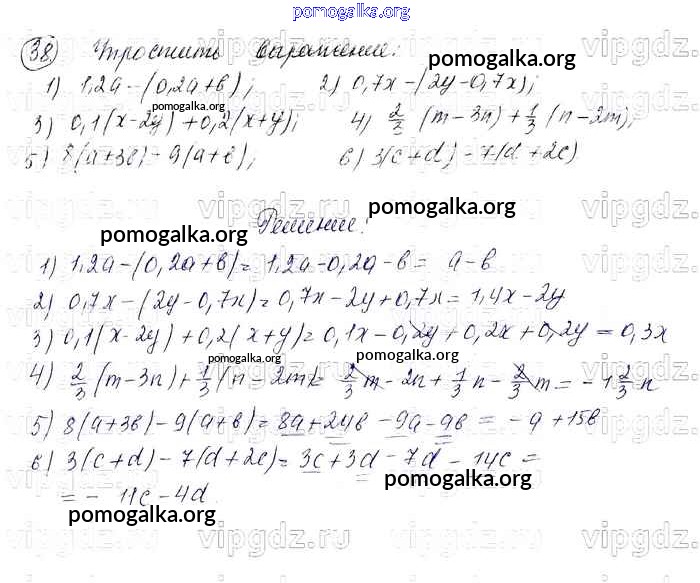 pomogalka.org
38) Упростить выражение:
pomogalka.org
1) 1,2a - (0,2a+в); 2) 0,7x-(2y-0,7x);
pomogalka.org
3) 0,1(x-2y)+0,2(x+y); 4) 2/3 (m-3n)+1/3 (n-2m);
5) 8(a+3в)-9(a+в); 6) 3(c+d)-7(d+2c)
pomogalka.org
Решение:
pomogalka.org
1) 1,2a-(0,2a+в)=1,2a-0,2a-в= a-в
2) 0,7x-(2y-0,7x)=0,7x-2y+0,7x=1,4x-2y
3) 0,1(x-2y)+0,2(x+y)=0,1x-0,2y+0,2x+0,2y=0,3x
pomogalka.org pomogalka.org
4) 2/3 (m-3n)+1/3 (n-2m)= 2/3 m-2n+1/3 n-2/3 m=-1 2/3 n
5) 8(a+3в)-9(a+в)=8a+24в-9a-9в=-a+15в
6) 3(c+d)-7(d+2c)=3c+3d-7d-14c=
=-11c-4d
pomogalka.org
vipgdz.ru vipgdz.ru vipgdz.ru